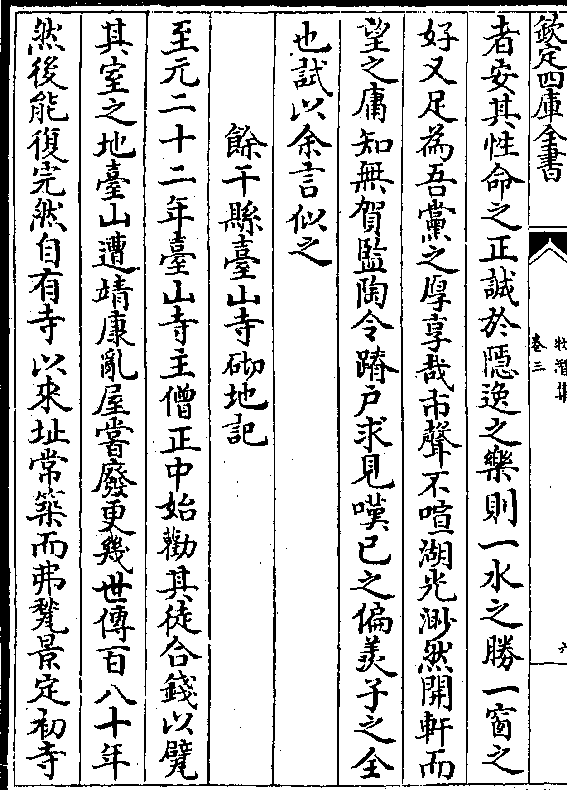 欽定四庫全書
牧潛集
卷三
六
者安其性命之正誠於隱逸之樂則一水之勝一窗之
好又足為吾黨之厚享哉市聲不喧湖光渺然開軒而
望之庸知無賀監陶令躋户求見嘆已之偏羨子之全
也試以余言似之
餘干縣臺山寺砌地記
至元二十二年臺山寺主僧正中始勸其徒合錢以甓
其室之地臺山遭靖康亂屋嘗廢更幾世傳百八十年
然後能復完然自有寺以來址常築而弗甃景定初寺